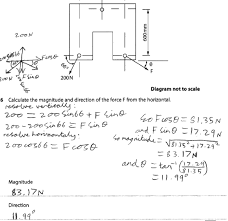 200N
600mm
F
θ
200N
Diagram not to scale
6 Calculate the magnitude and direction of the force F from the horizontal.
resolve vertically:
200 = 200 sin 66 + F sin θ
200 - 200 sin 66 = F sin θ
resolve horizontally:
200 cos 66 = F cos θ
So F cos θ = 81.35N
and F sin θ = 17.29N
So magnitude = √81.35² + 17.29²
= 83.17N
and θ = tan⁻¹(17.29/81.35)
= 11.99°
Magnitude
83.17N
Direction
11.99°